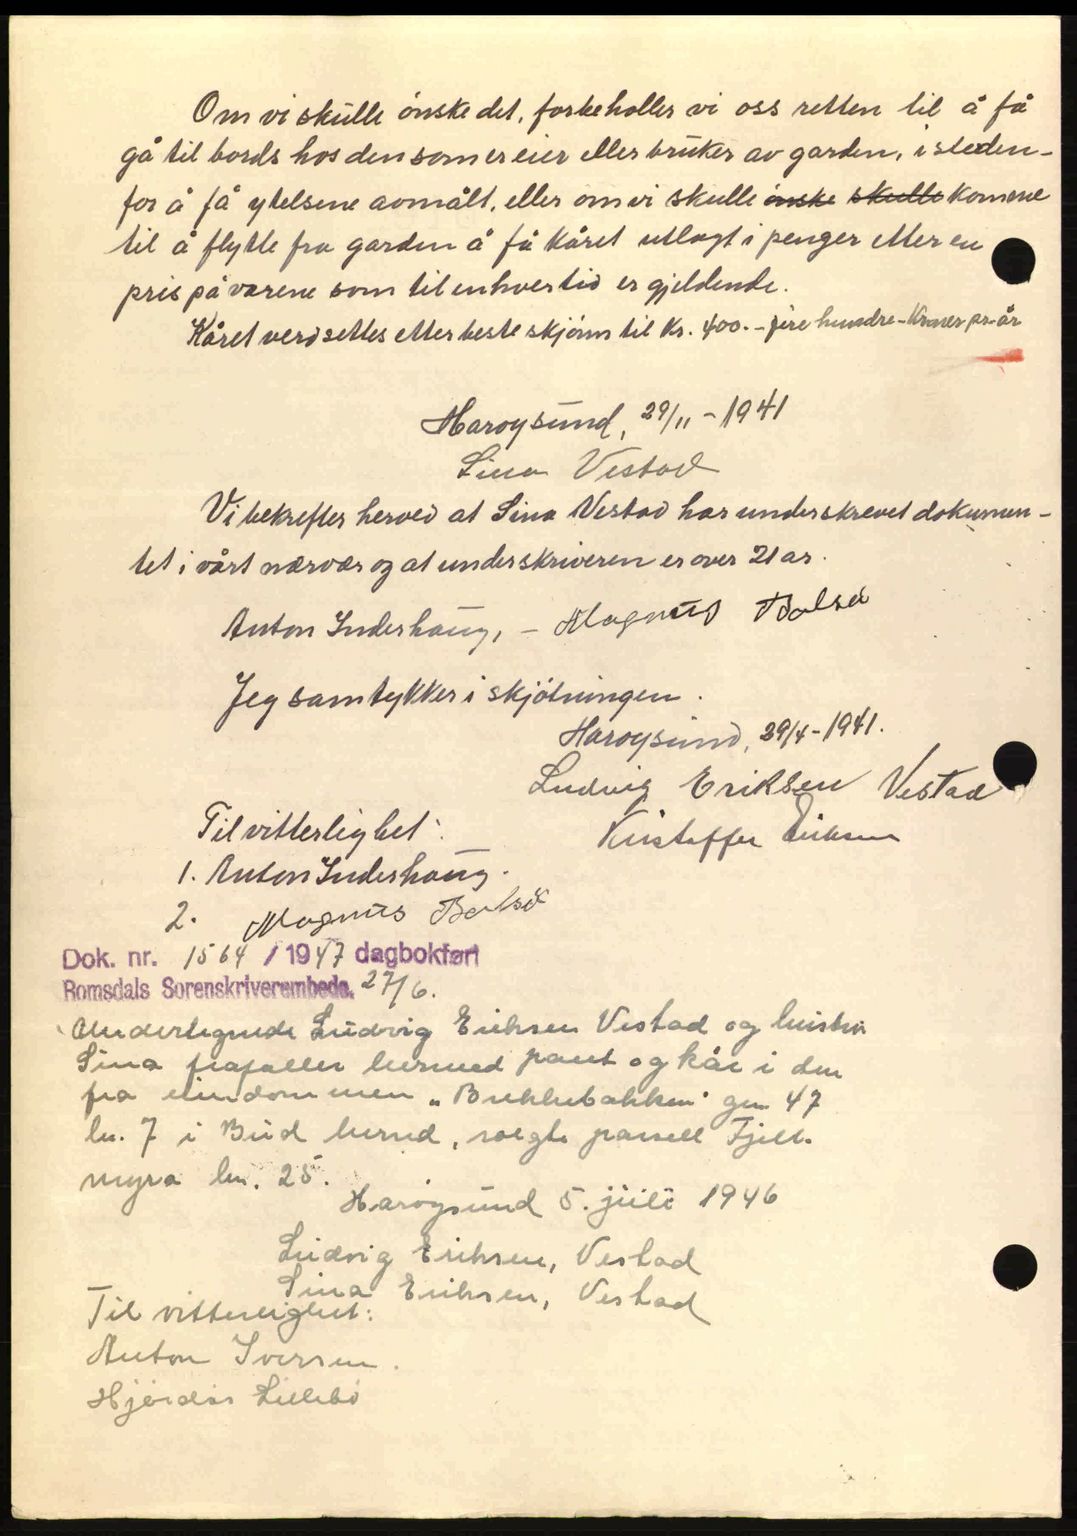 Om vi skulle ønske det, forbeholler vi oss retten til å få
gå til bords hos den som er eier eller bruker av garden, i steden-
for å få ytelsene avmålt, eller om vi skulle ønske skulle komme
til å flytte fra garden å få kåret utlagt i penger etter en
pris på varene som til enhver tid er gjeldende.
Kåret verdsettes etter beste skjønn til Kr. 400.- fire hundre - Kroner pr. år
Harøysund, 29/11 - 1941
Lina Vestad
Vi bekrefter herved at Lina Vestad har underskrevet dokumen-
tet i vårt nærvær og at underskriveren er over 21 år.
Anton Inderhaug, - Magnus Bolsø
Jeg samtykker i skjøtningen.
Harøysund, 29/4 - 1941.
Ludvig Eriksen Vestad
Kristoffer Eriksen
Til vitterlighet:
1. Anton Inderhaug.
2. Magnus Bolsø
Dok. nr. 1564 / 1947 dagbokført
Romsdals Sorenskriverembede. 27/6.
Undertegnede Ludvig Eriksen Vestad og hustru
Lina frafaller hermed pant og kår i den
fra eiendommen "Brekkebakken" gn. 47
bn. 7 i Bud herred, solgte parsell Fjell-
myra bn. 25.
Harøysund 5. juli 1946
Ludvig Eriksen, Vestad
Lina Eriksen, Vestad
Til vitterlighet:
Anton Iversen.
Hjørdis Lillebø